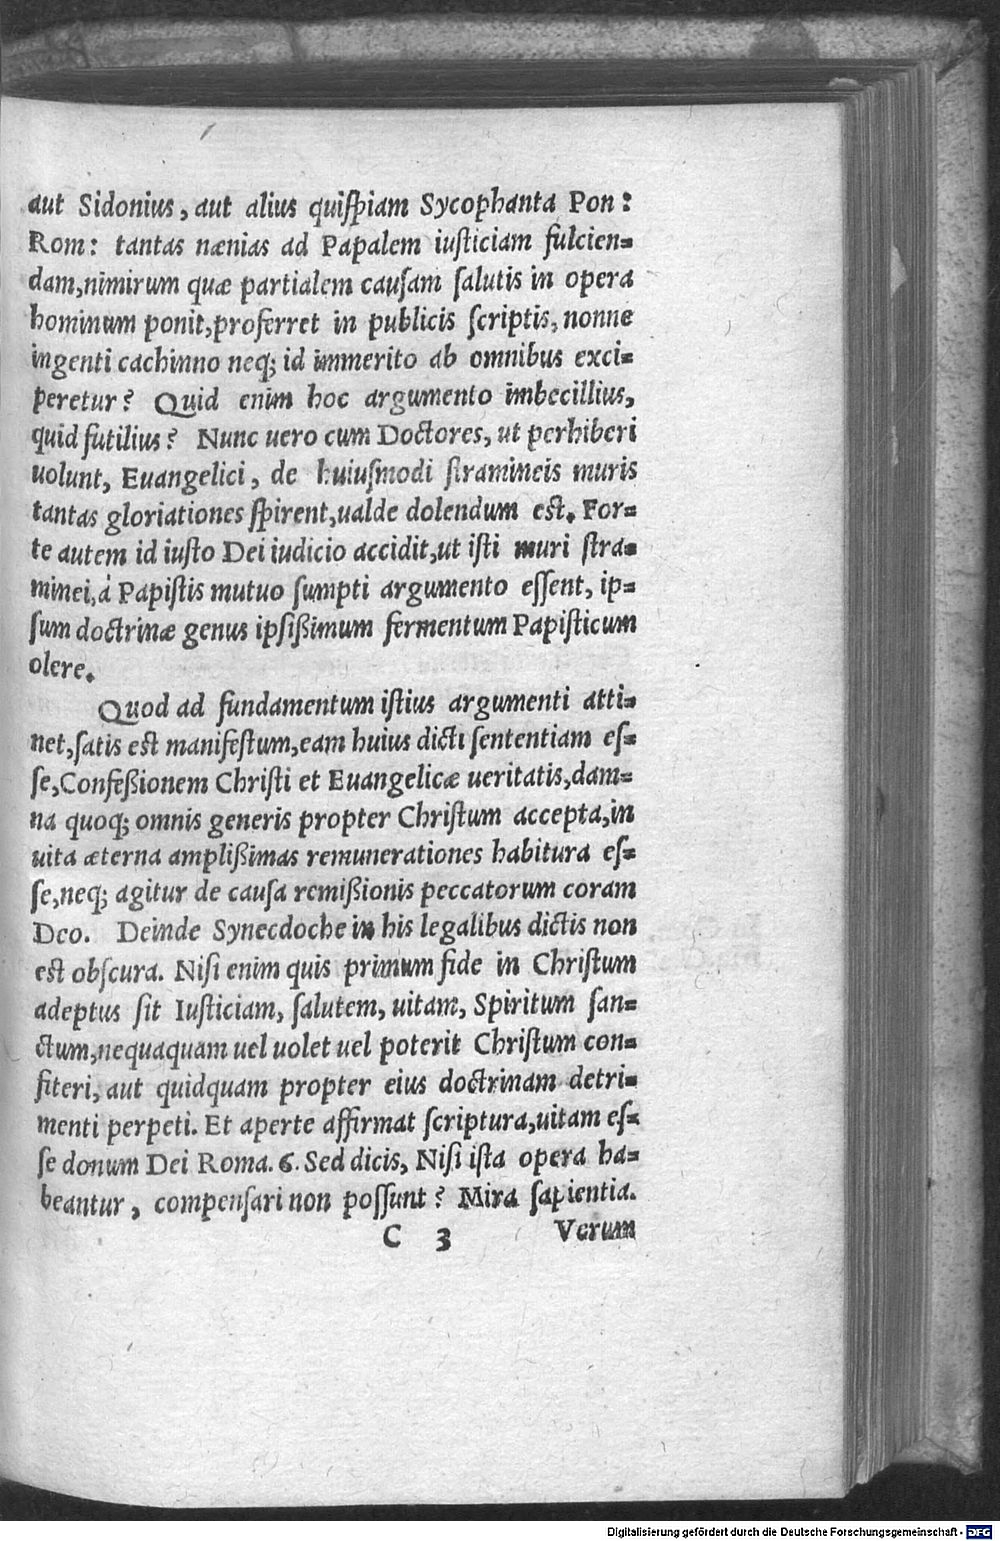 aut Sidonius, aut alius quiſpiam Sycophanta Pon:
Rom: tantas nænias ad Papalem iuſticiam fulcien=
dam,nimirum quæ partialem cauſam ſalutis in opera
hominum ponit,proferret in publicis ſcriptis, nonne
ingenti cachinno neq; id immerito ab omnibus exci=
peretur? Quid enim hoc argumento imbecillius,
quid futilius? Nunc uero cum Doctores, ut perhiberi
uolunt, Euangelici, de huiuſmodi ſtramineis muris
tantas gloriationes ſpirent,ualde dolendum eſt. For=
te autem id iuſto Dei iudicio accidit,ut iſti muri ſtra=
minei,à Papiſtis mutuo ſumpti argumento eſſent, ip=
ſum doctrinæ genus ipſißimum fermentum Papiſticum
olere.
Quod ad fundamentum iſtius argumenti atti=
net,ſatis eſt manifeſtum,eam huius dicti ſententiam eſ=
ſe,Confeßionem Chriſti et Euangelicæ ueritatis,dam=
na quoq; omnis generis propter Chriſtum accepta,in
uita æterna amplißimas remunerationes habitura eſ=
ſe,neq; agitur de cauſa remißionis peccatorum coram
Deo. Deinde Synecdoche in his legalibus dictis non
eſt obſcura. Niſi enim quis primum fide in Chriſtum
adeptus ſit Iuſticiam, ſalutem, uitam, Spiritum ſan=
ctum,nequaquam uel uolet uel poterit Chriſtum con=
fiteri, aut quidquam propter eius doctrinam detri=
menti perpeti. Et aperte affirmat ſcriptura,uitam eſ=
ſe donum Dei Roma. 6. Sed dicis, Niſi iſta opera ha=
beantur, compenſari non poſſunt? Mira ſapientia.
C 3 Verum
Digitalisierung gefördert durch die Deutsche Forschungsgemeinschaft - DFG